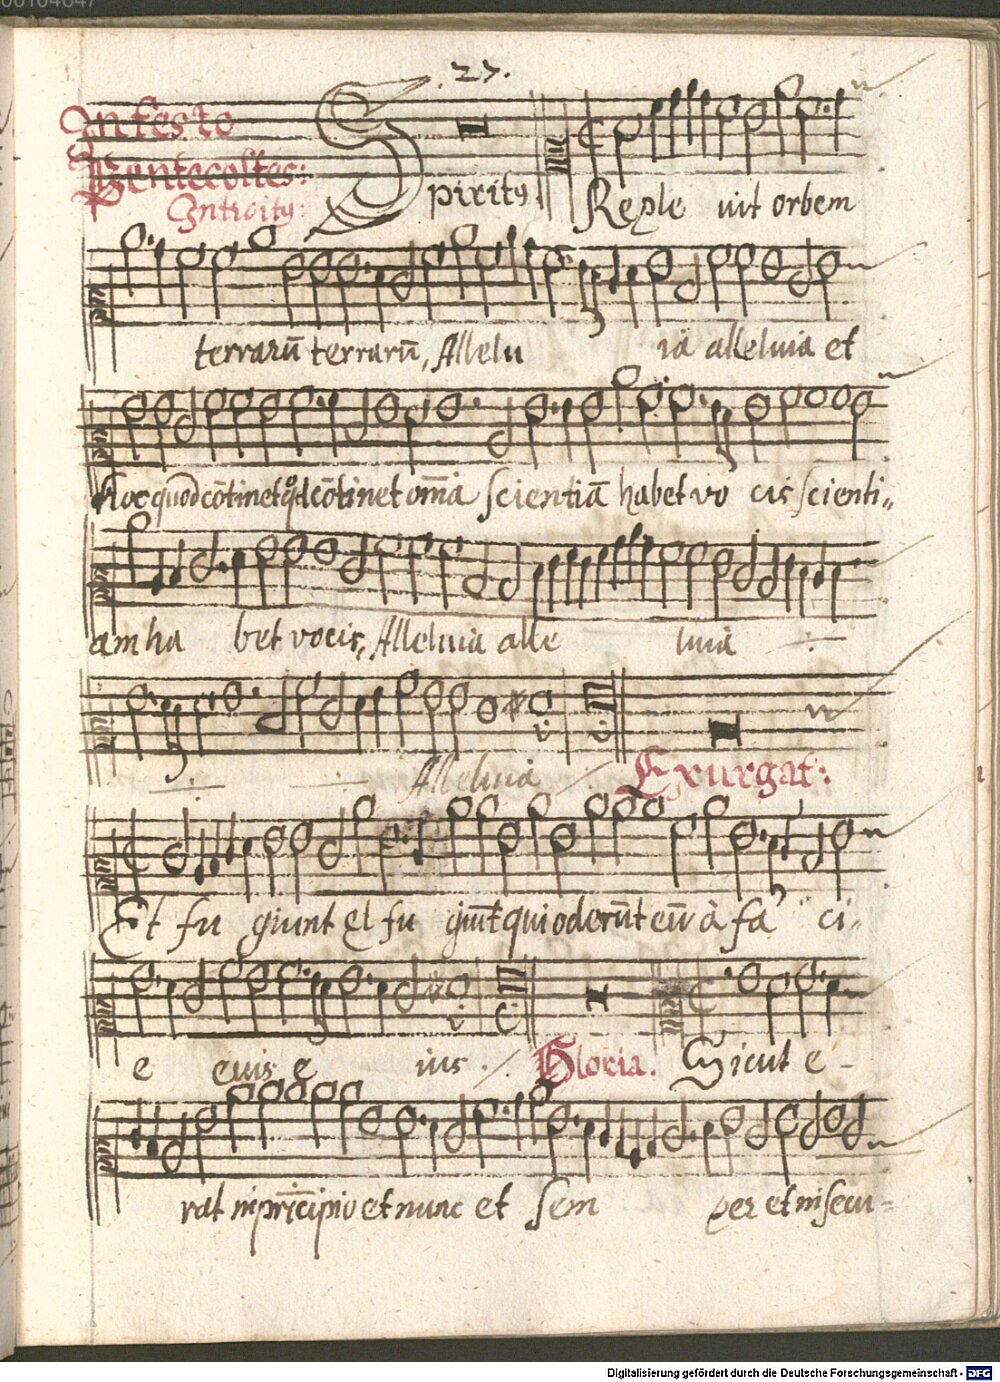 00104647
.27.
In festo
Pentecostes:
Introitus:
Spiritus Reple vit orbem
terrarū terrarū, Allelu ia alleluia et
hoc quod cōtinet qd cōtinet om̄ia scientiā habet vo cis scienti„
am ha bet vocis, Alleluia alle luia
Alleluia Exurgat:
Et fu giunt et fu giūt qui oderūt eū à fa ci„
e eius e ius . Gloria. Sicut e -
rat in prīcipio et nunc et sem per et in secu=
Digitalisierung gefördert durch die Deutsche Forschungsgemeinschaft - DFG